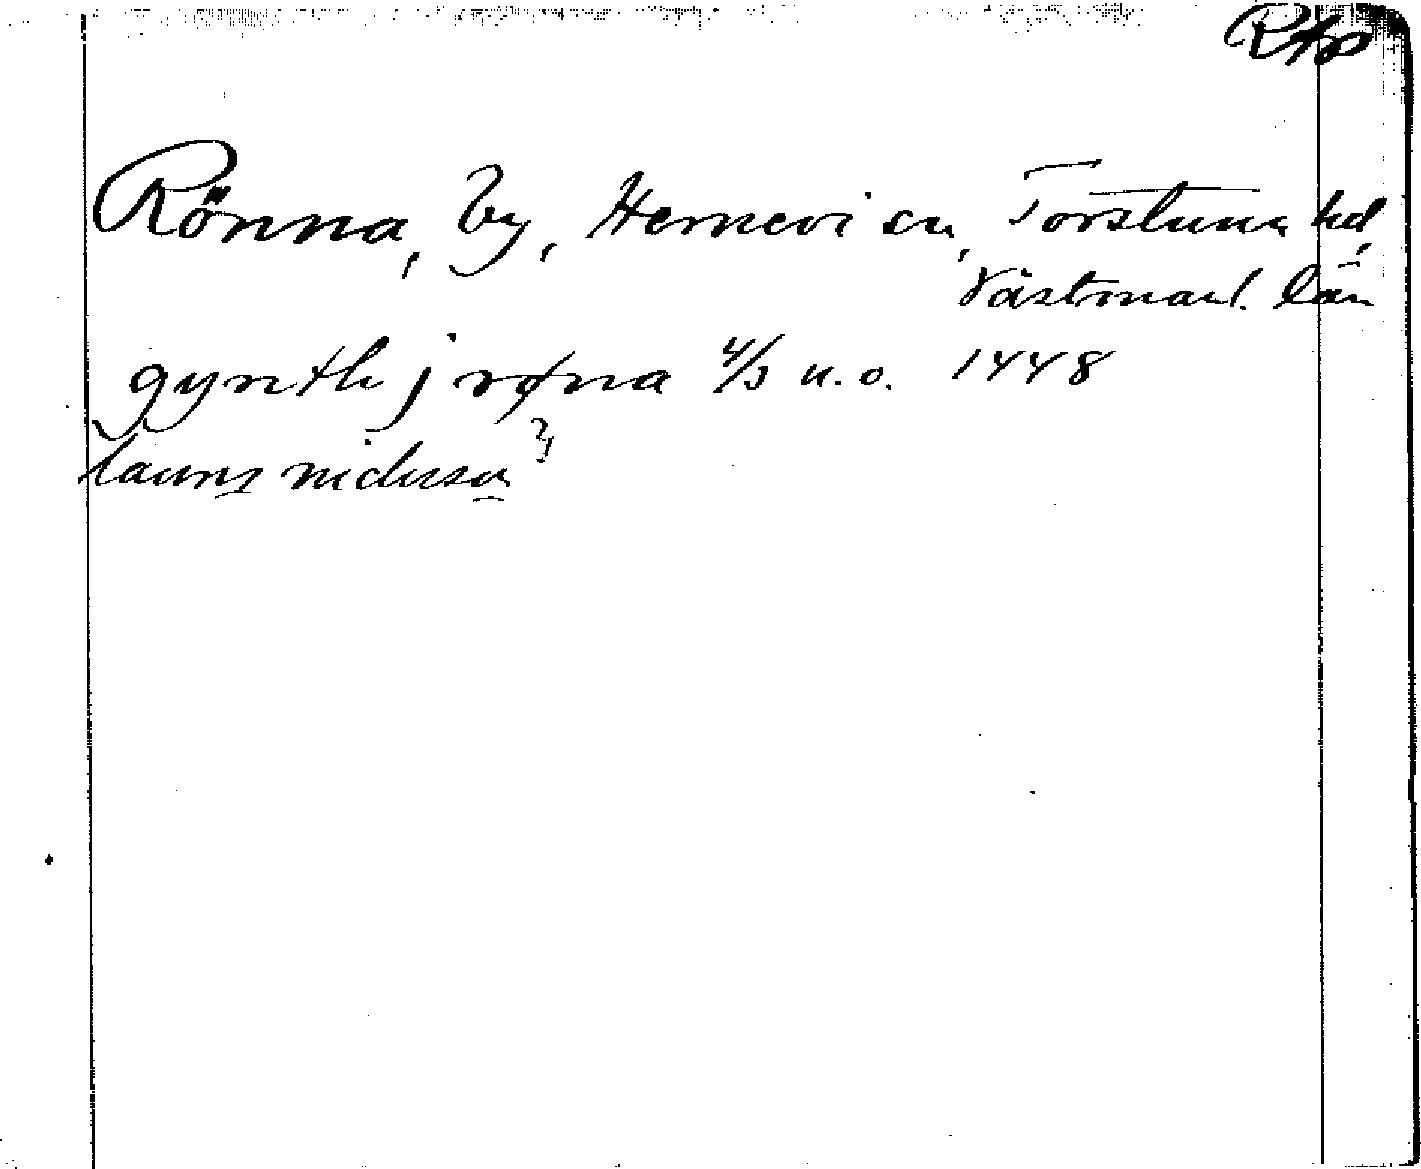 Rap
Rönna, by, Hernevi sn, Torstuna hd,
Västmanl. län
gynth j røna 4/3 u.o. 1448
lauris niclisson